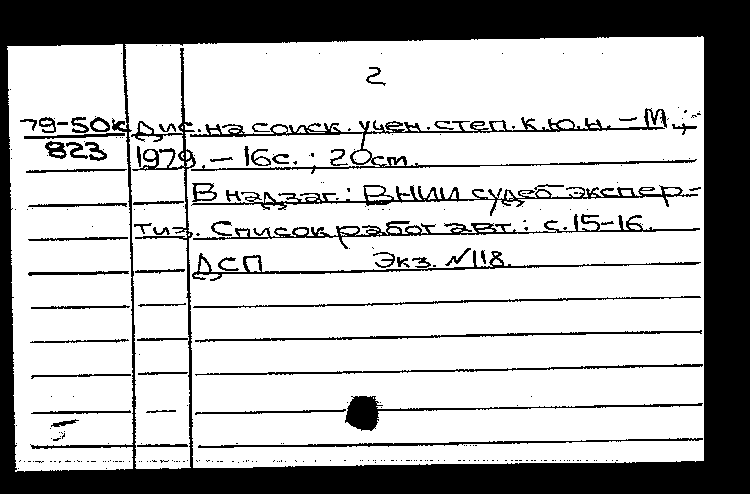 2
79-50к дис. на соиск. учен. степ. к.ю.н. – М.,
823 1979. – 16с. ; 20см.
В надзаг.: ВНИИ судеб экспер-
тиз. Список работ авт.: с.15-16.
ДСП Экз. №118.
5